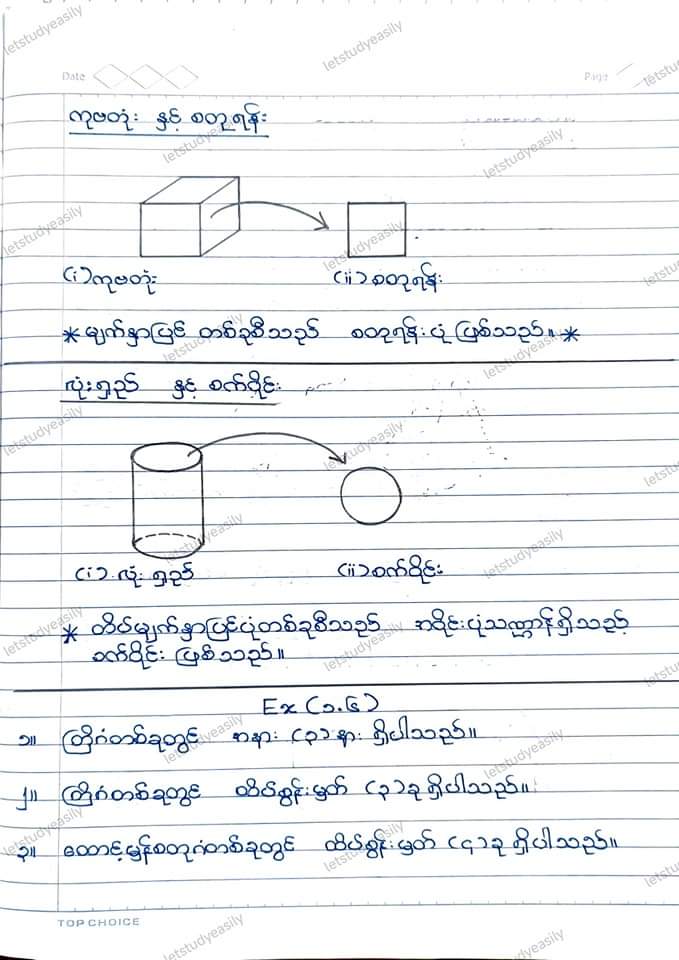 letstudyeasily
Date
Page
ကုဗတုံး နှင့် စတုရန်း
(i) ကုဗတုံး
(ii) စတုရန်း
* မျက်နှာပြင် တစ်ခုစီသည် စတုရန်းပုံ ဖြစ်သည်။ *
လုံးရှည် နှင့် စက်ဝိုင်း
(i) လုံးရှည်
(ii) စက်ဝိုင်း
* ထိပ်မျက်နှာပြင်ပုံတစ်ခုစီသည် အဝိုင်းပုံသဏ္ဌာန်ရှိသည့်
စက်ဝိုင်း ဖြစ်သည်။
Ex (၁.၆)
၁။ တြိဂံတစ်ခုတွင် အနား (၃) နား ရှိပါသည်။
၂။ တြိဂံတစ်ခုတွင် ထိပ်စွန်းမှတ် (၃) ခု ရှိပါသည်။
၃။ ထောင့်မှန်စတုဂံတစ်ခုတွင် ထိပ်စွန်းမှတ် (၄) ခု ရှိပါသည်။
TOP CHOICE